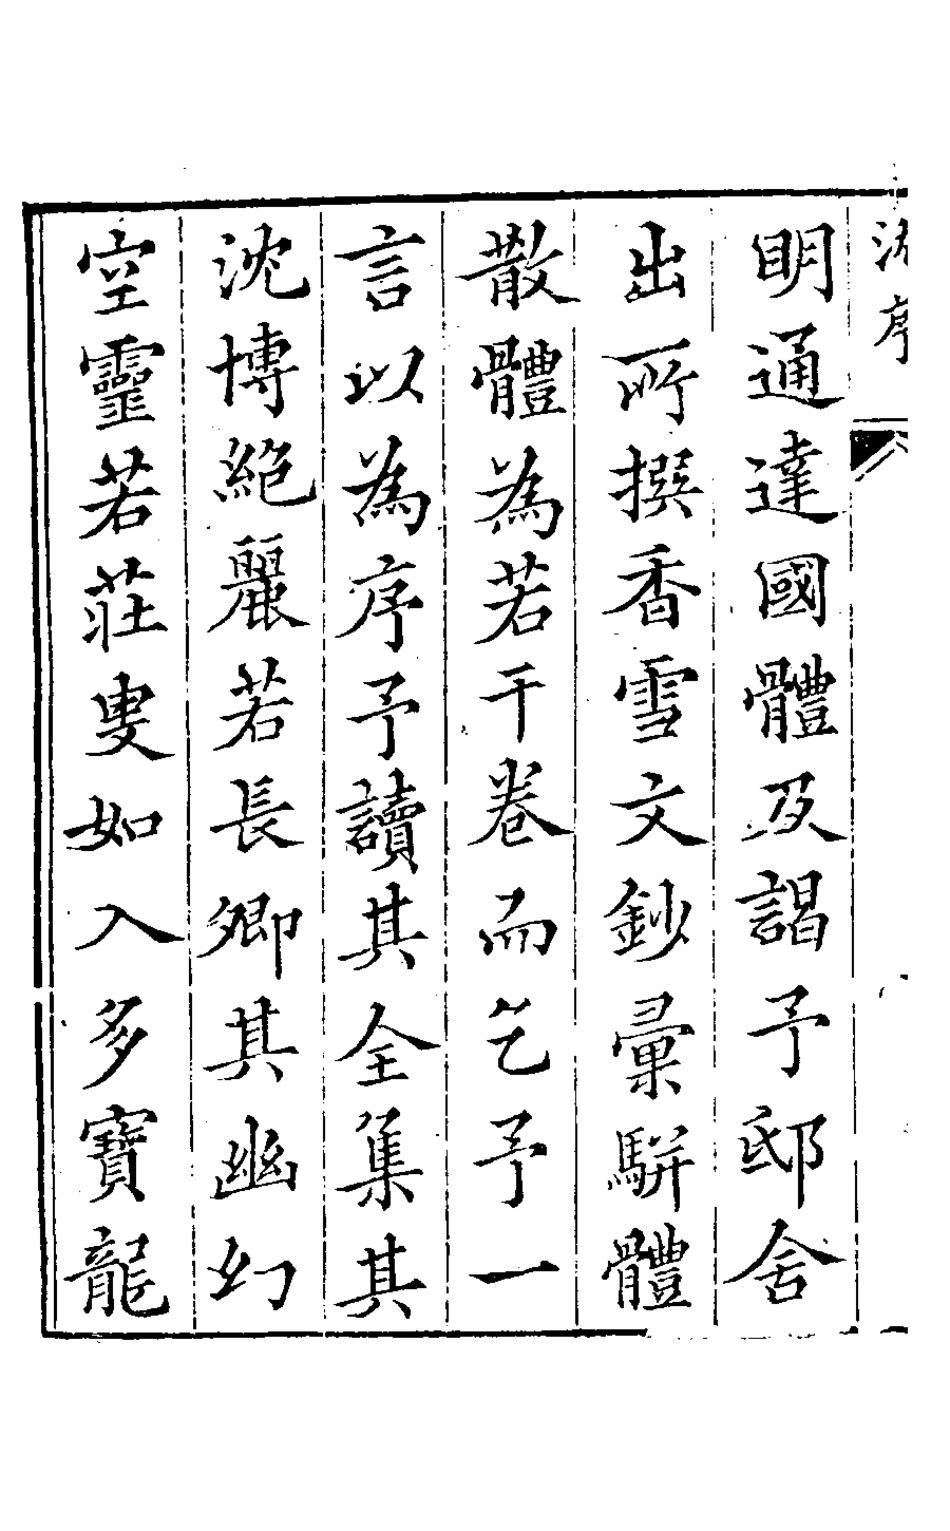 序
明通達國體及謁予邸舍
出所撰香雪文鈔彙駢體
散體為若干卷而乞予一
言以為序予讀其全集其
沈博絕麗若長卿其幽幻
空靈若莊叟如入多寶龍